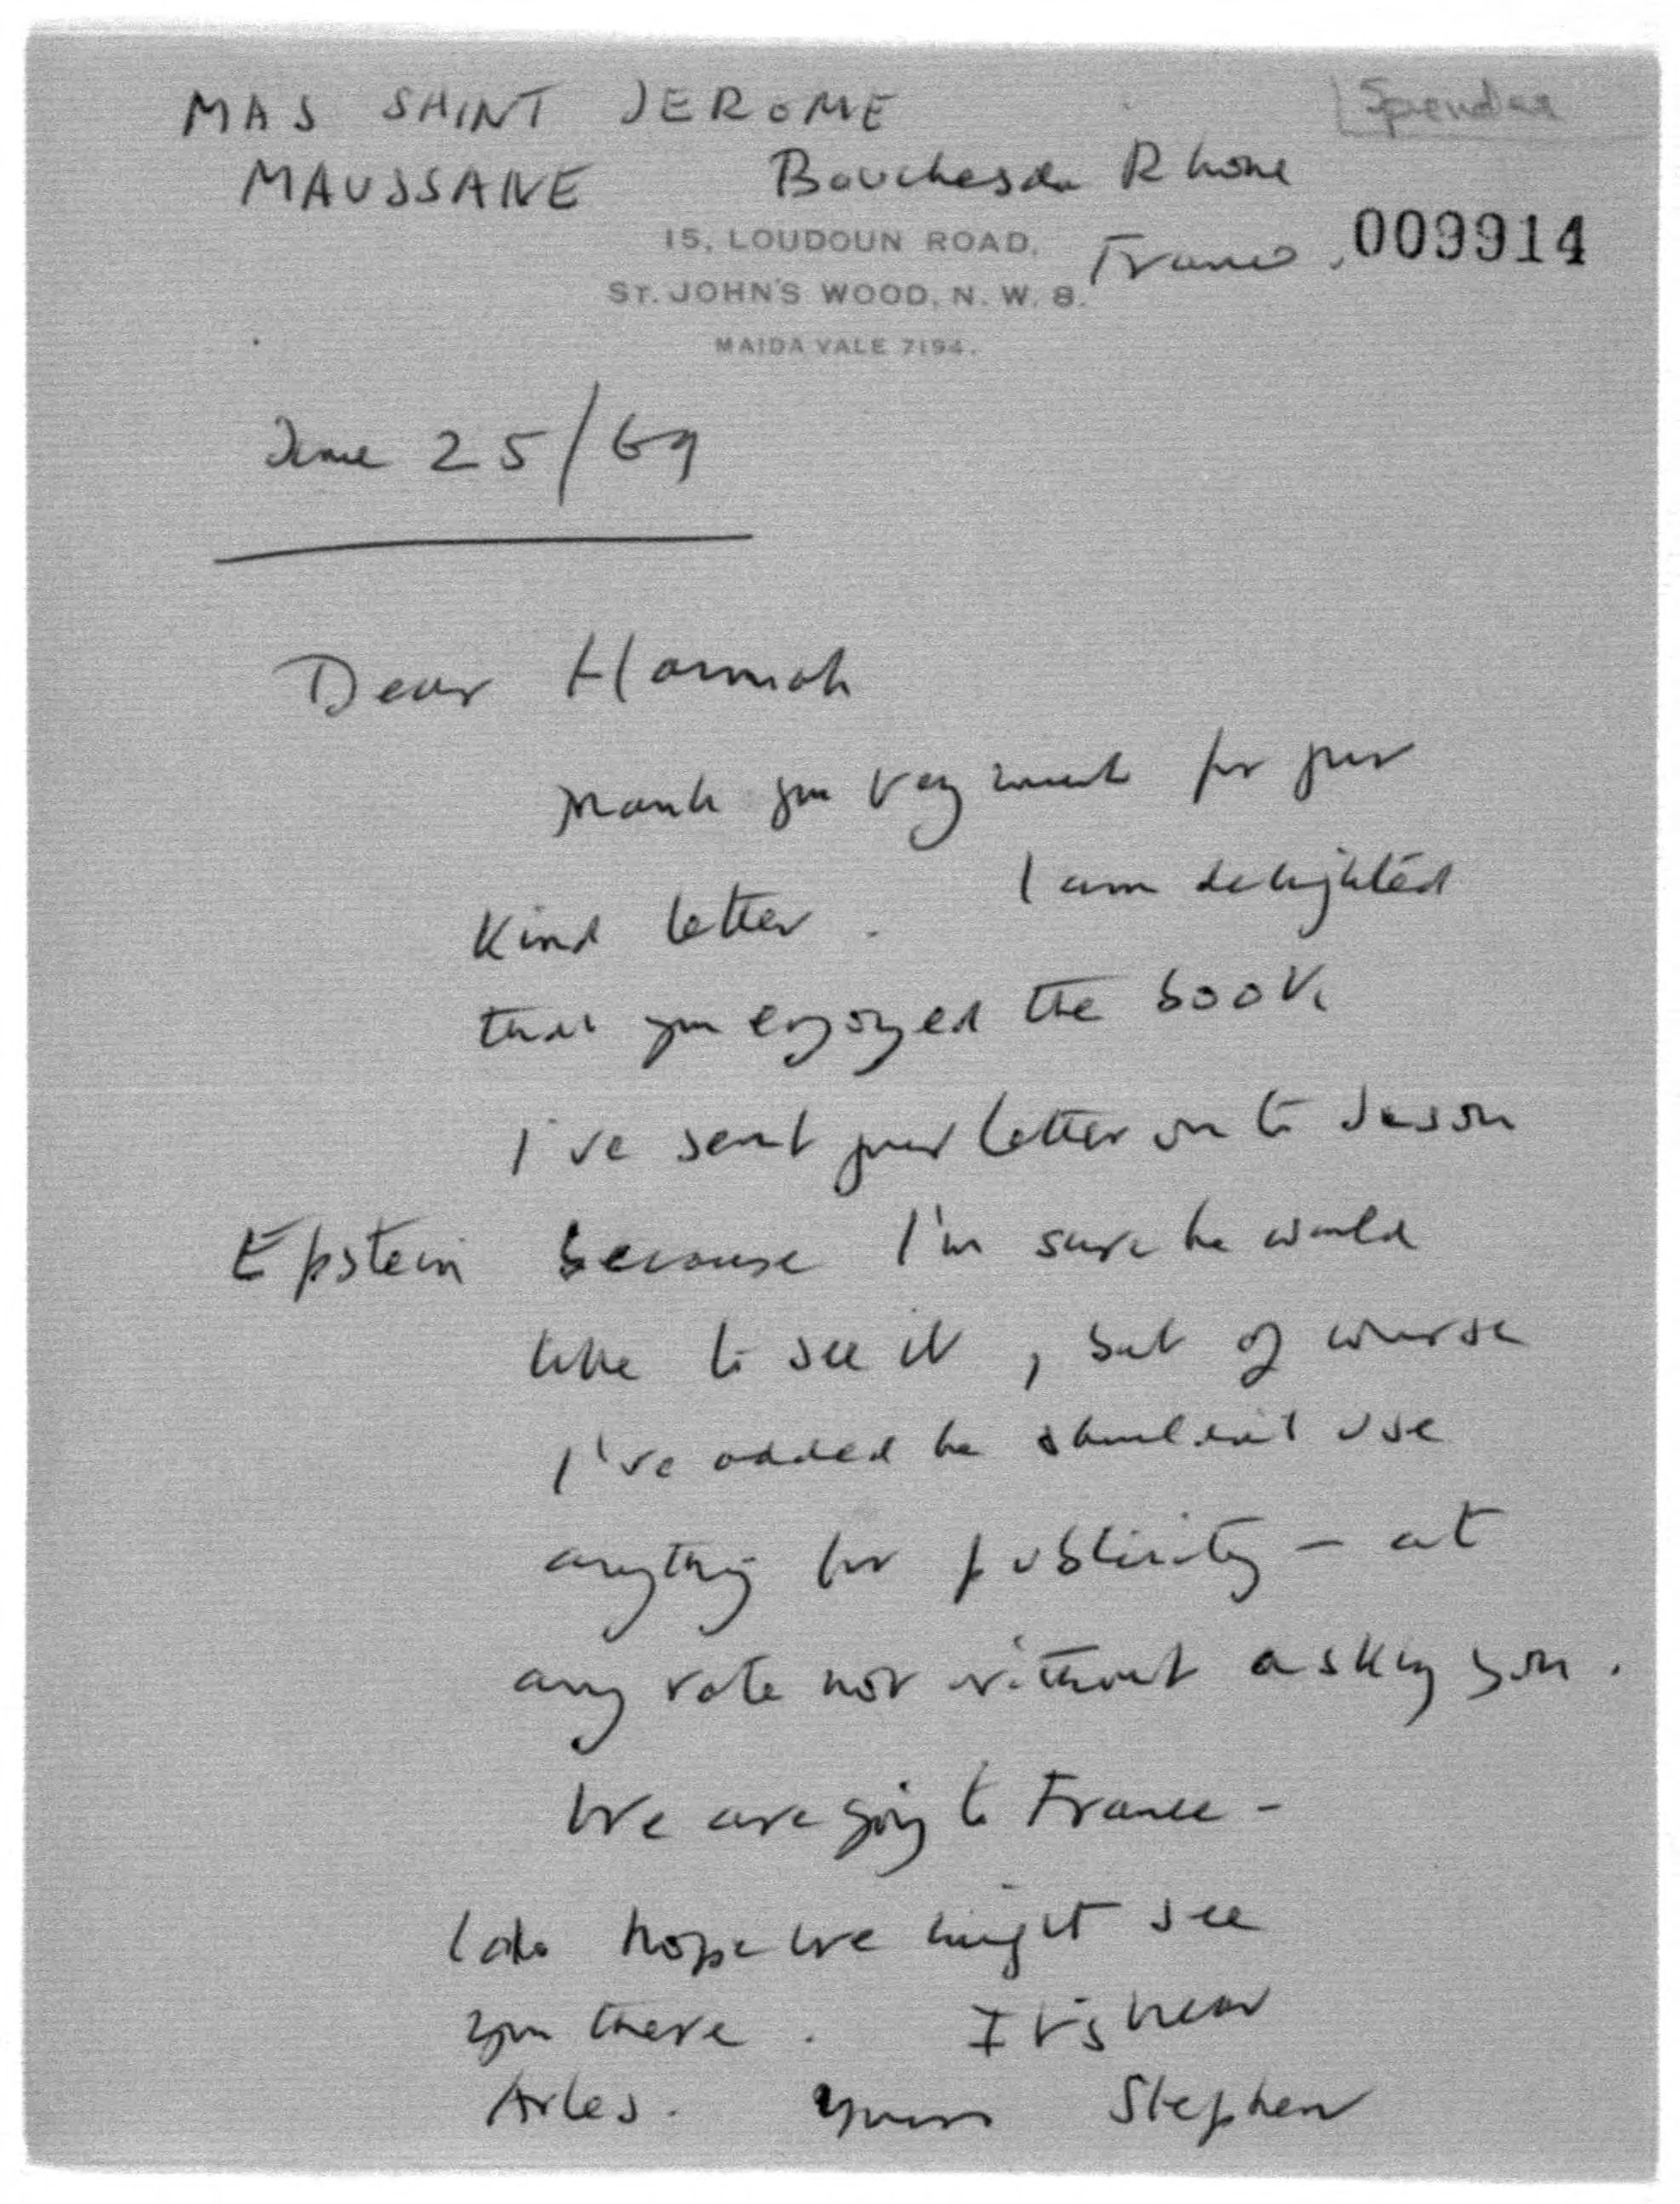 Spender
MAS SAINT JEROME
MAUSSANE Bouches du Rhone
15, LOUDOUN ROAD, France.
009914
ST. JOHN'S WOOD, N. W. 8.
MAIDA VALE 7194.
June 25/69
Dear Hannah
Thank you very much for your
kind letter. I am delighted
that you enjoyed the book.
I've sent your letter on to Jason
Epstein because I'm sure he would
like to see it, but of course
I've added he shouldn't use
anything for publicity – at
any rate not without asking you.
We are going to France –
I do hope we might see
you there. It is near
Arles. Yours Stephen